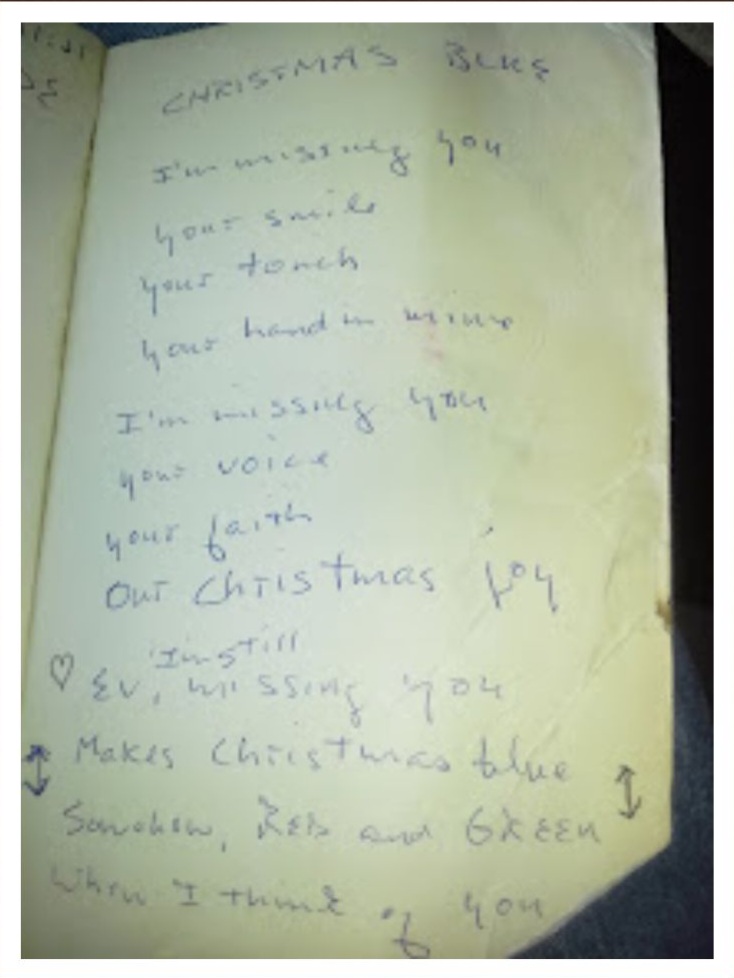 CHRISTMAS BLUE
I'm missing you
your smile
your touch
your hand in mine
I'm missing you
your voice
your faith
Our Christmas joy
I'm still
♡ Ev, missing you
Makes Christmas blue
Somehow, Red and GREEN
When I think of you